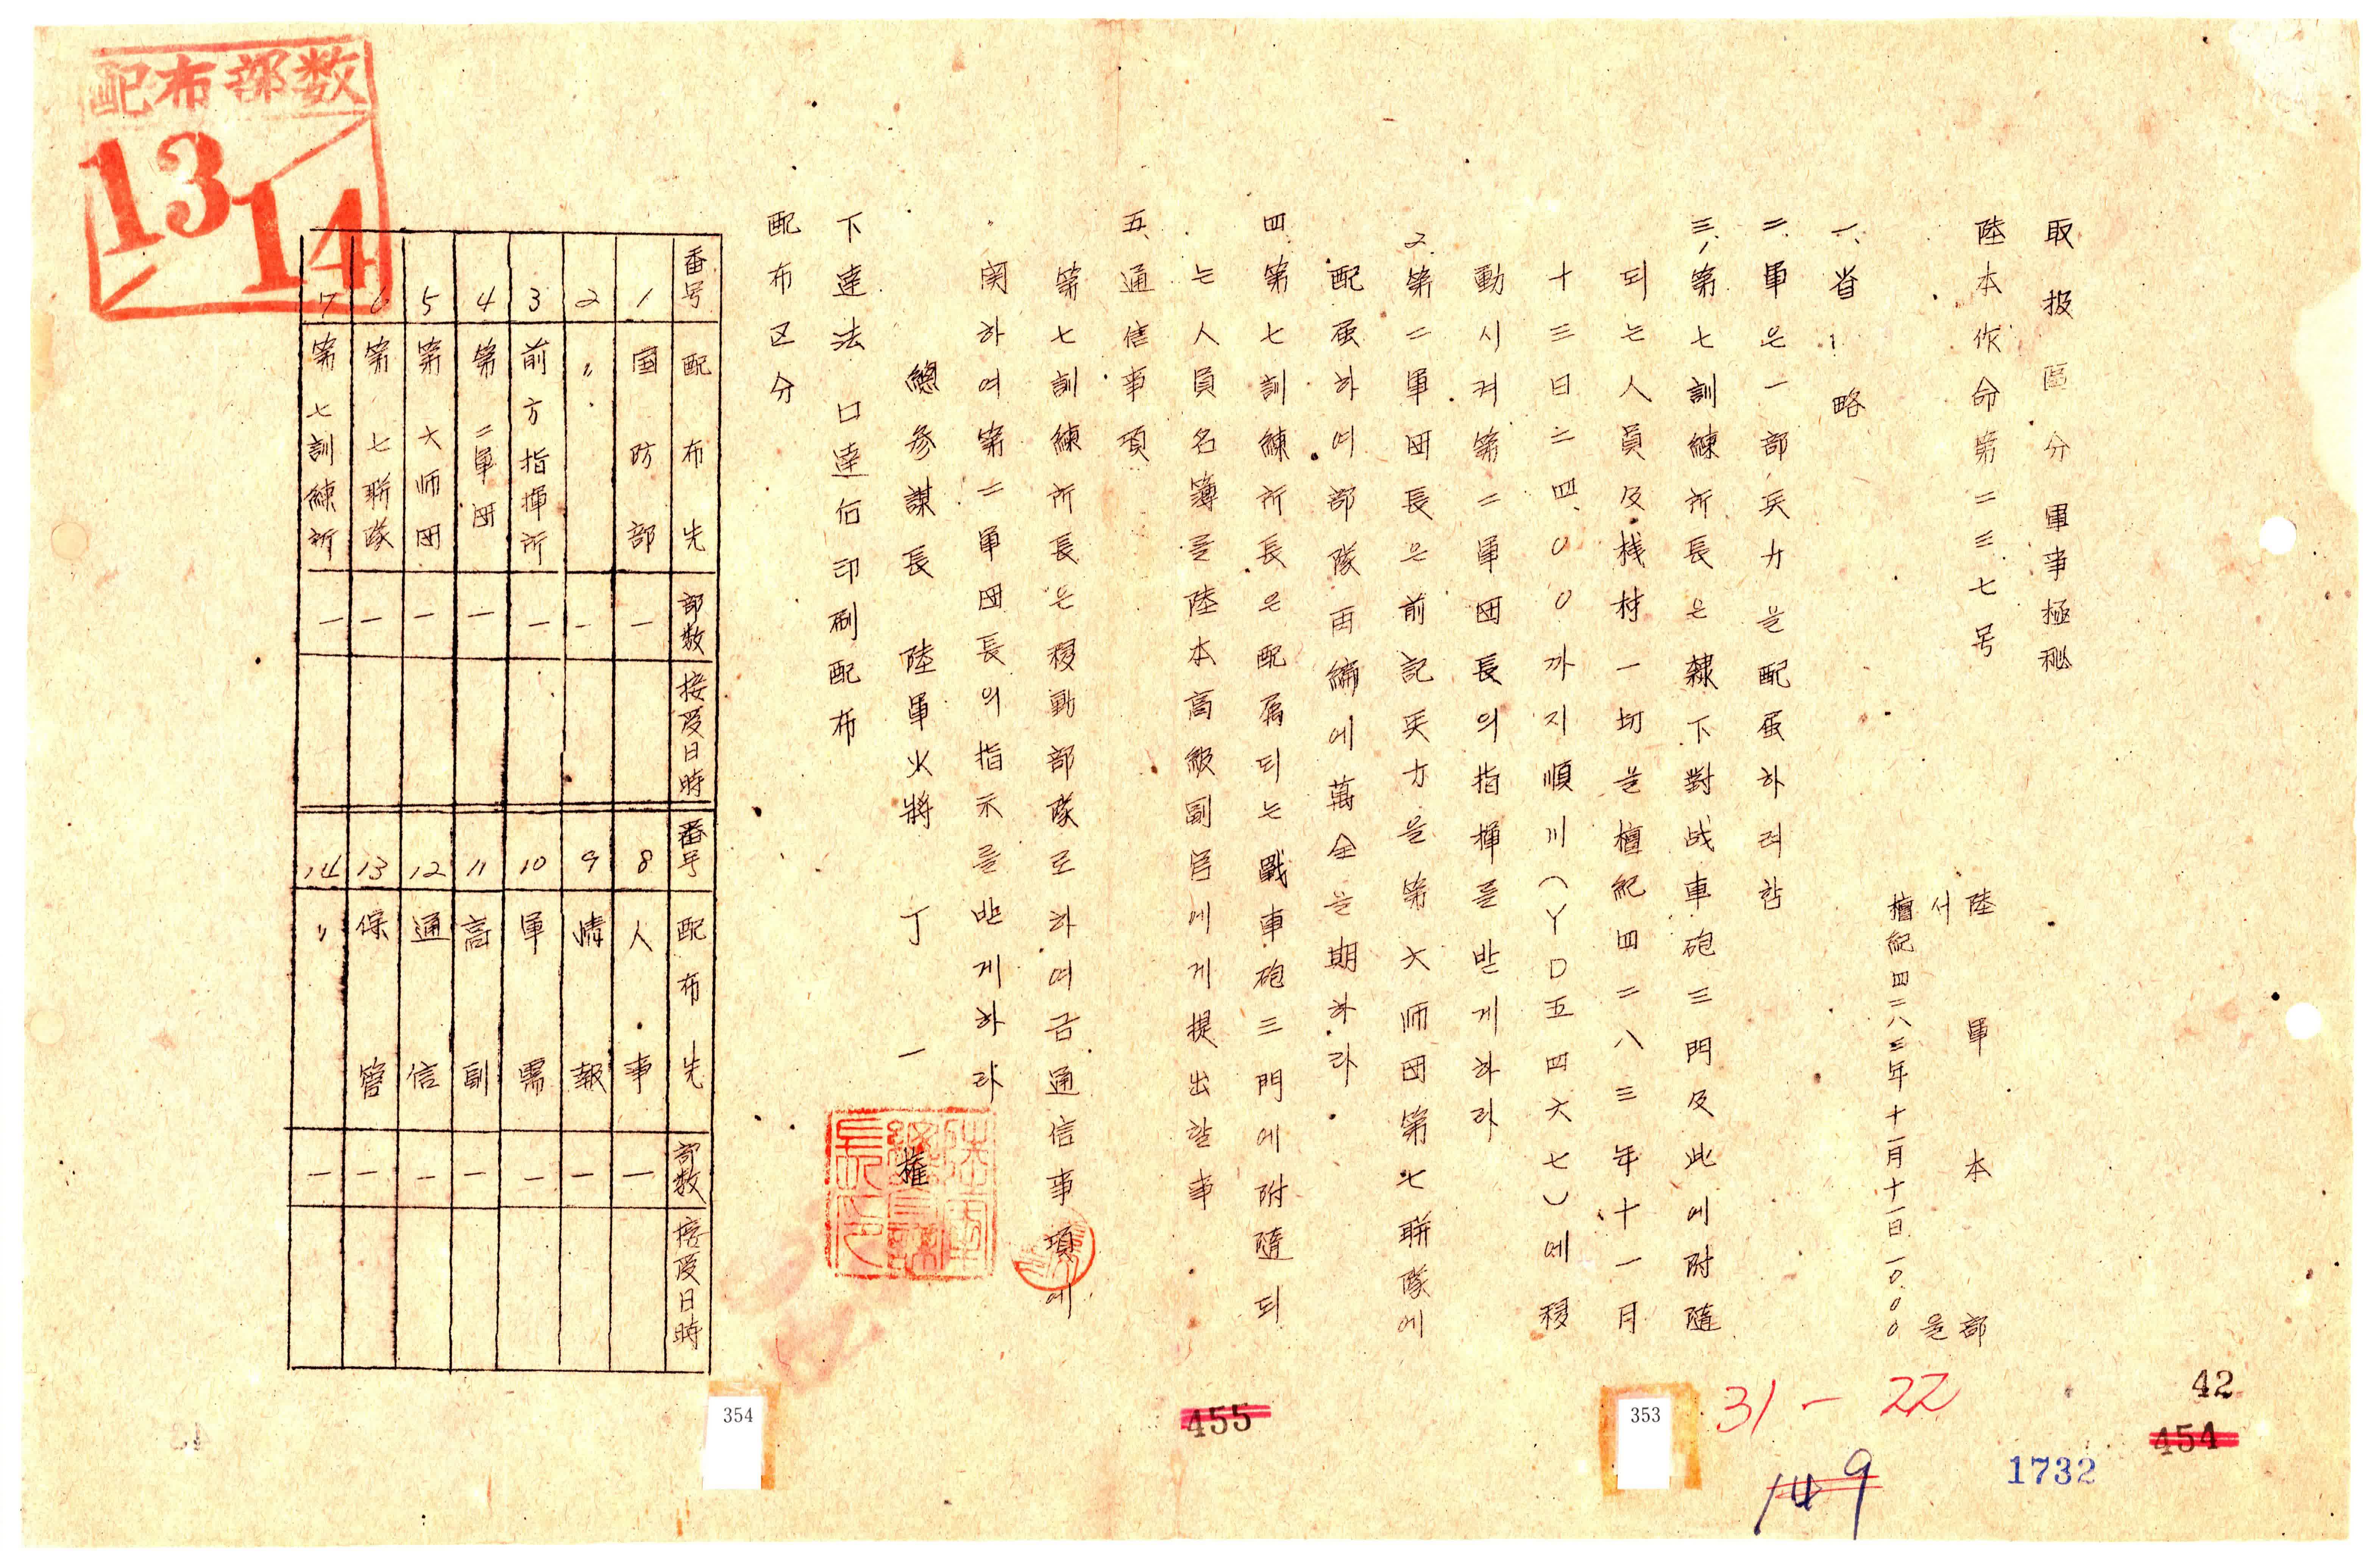 取扱區分 軍事極秘
陸本作命第二三七号
陸軍本部
서울
檀紀四二八三年十一月十一日一0.00
一、省略
二、軍은一部兵力을配屬하려함
三、1第七訓練所長은隷下對战車砲三門及此에附隨
되는人員及機材一切을檀紀四二八三年十一月
十三日二四、00까지順川(YD五四六七)에移
動시켜第二軍団長의指揮를받게하라
2第二軍団長은前記兵力을第六师団第七聯隊에
配屬하여部隊再編에萬全을期하라
四第七訓練所長은配屬되는戰車砲三門에附隨되
는人員名簿를陸本高級副官에게提出할事
五、通信事項
第七訓練所長은移動部隊로하여금通信事項에
関하여第二軍団長의指示를받게하라
總參謀長 陸軍少將 丁一權
下達法 口達后印刷配布
配布区分
番号 配布先 部数 接受日時 番号 配布先 部数 接受日時
1 国防部 一 8 人事 一
2 〃 一 9 情報 一
3 前方指揮所 一 10 軍需 一
4 第二軍団 一 11 高副 一
5 第六师団 一 12 通信 一
6 第七聯隊 一 13 保管 一
7 第七訓練所 一 14 〃 一
配布部数
13/14
陸軍總參謀長印
42
454
1732
31-22
149
353
455
354